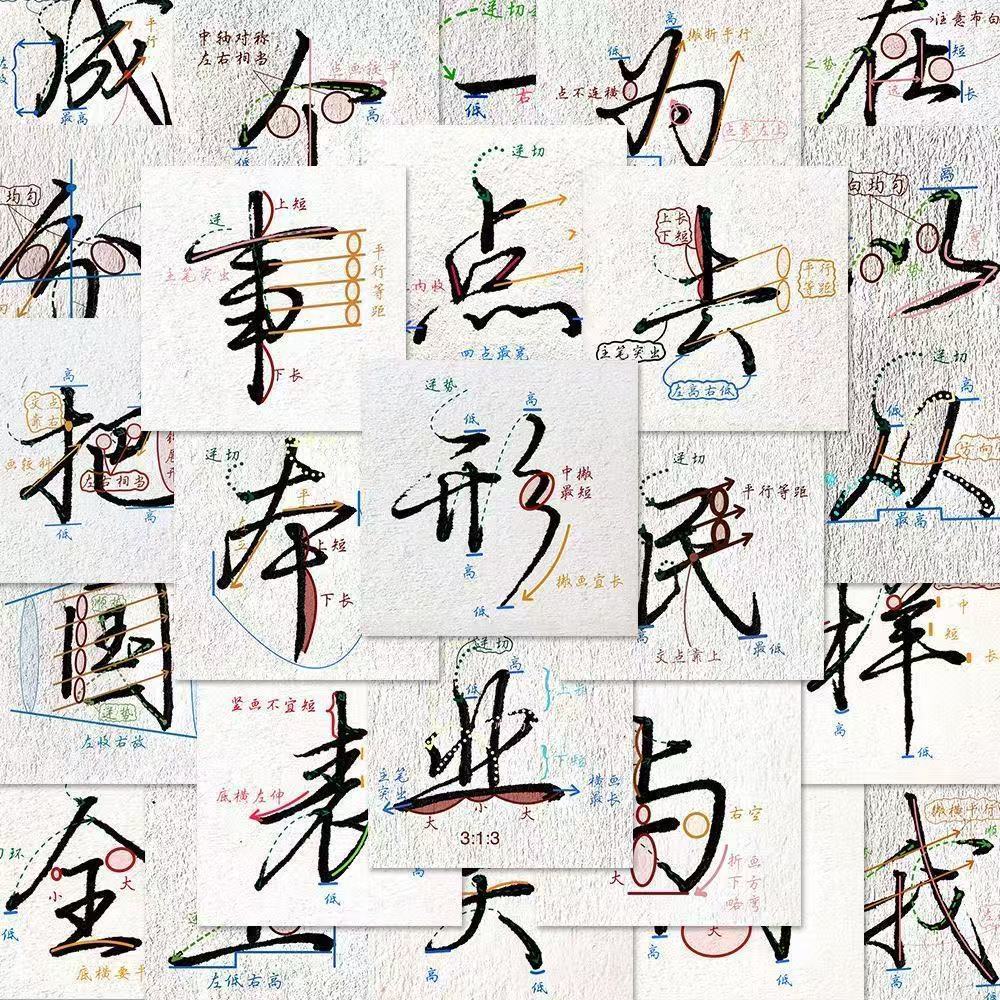 成
平行
最高
个
中轴对称
左右相当
高
低
逆切
一
低
右
为
高
低
撇折平行
点不连横
在
注意布白
之势
短
长
均匀
事
逆
上短
主笔突出
平行等距
下长
点
逆切
内收
四点最宽
去
上长
下短
平行
等距
主笔突出
左高右低
以
高
均匀
把
高
交点
靠右
左右相当
低
高
本
逆切
平
上短
下长
形
逆势
低
高
中撇
最短
高
低
撇画宜长
民
逆切
平行等距
交点靠上
最低
从
逆切
高
低
最高
国
顺势
逆势
左收右放
样
中
短
长
高
低
表
竖画不宜短
底横左伸
低
业
逆切
高
低
主笔
突出
横画
最长
大
小
大
3:1:3
与
右空
大
折画
下方
略弯
全
小
大
低
底横要平
逆
左低右高
大
高
低
高
大
低
我
撇横平行
高
低